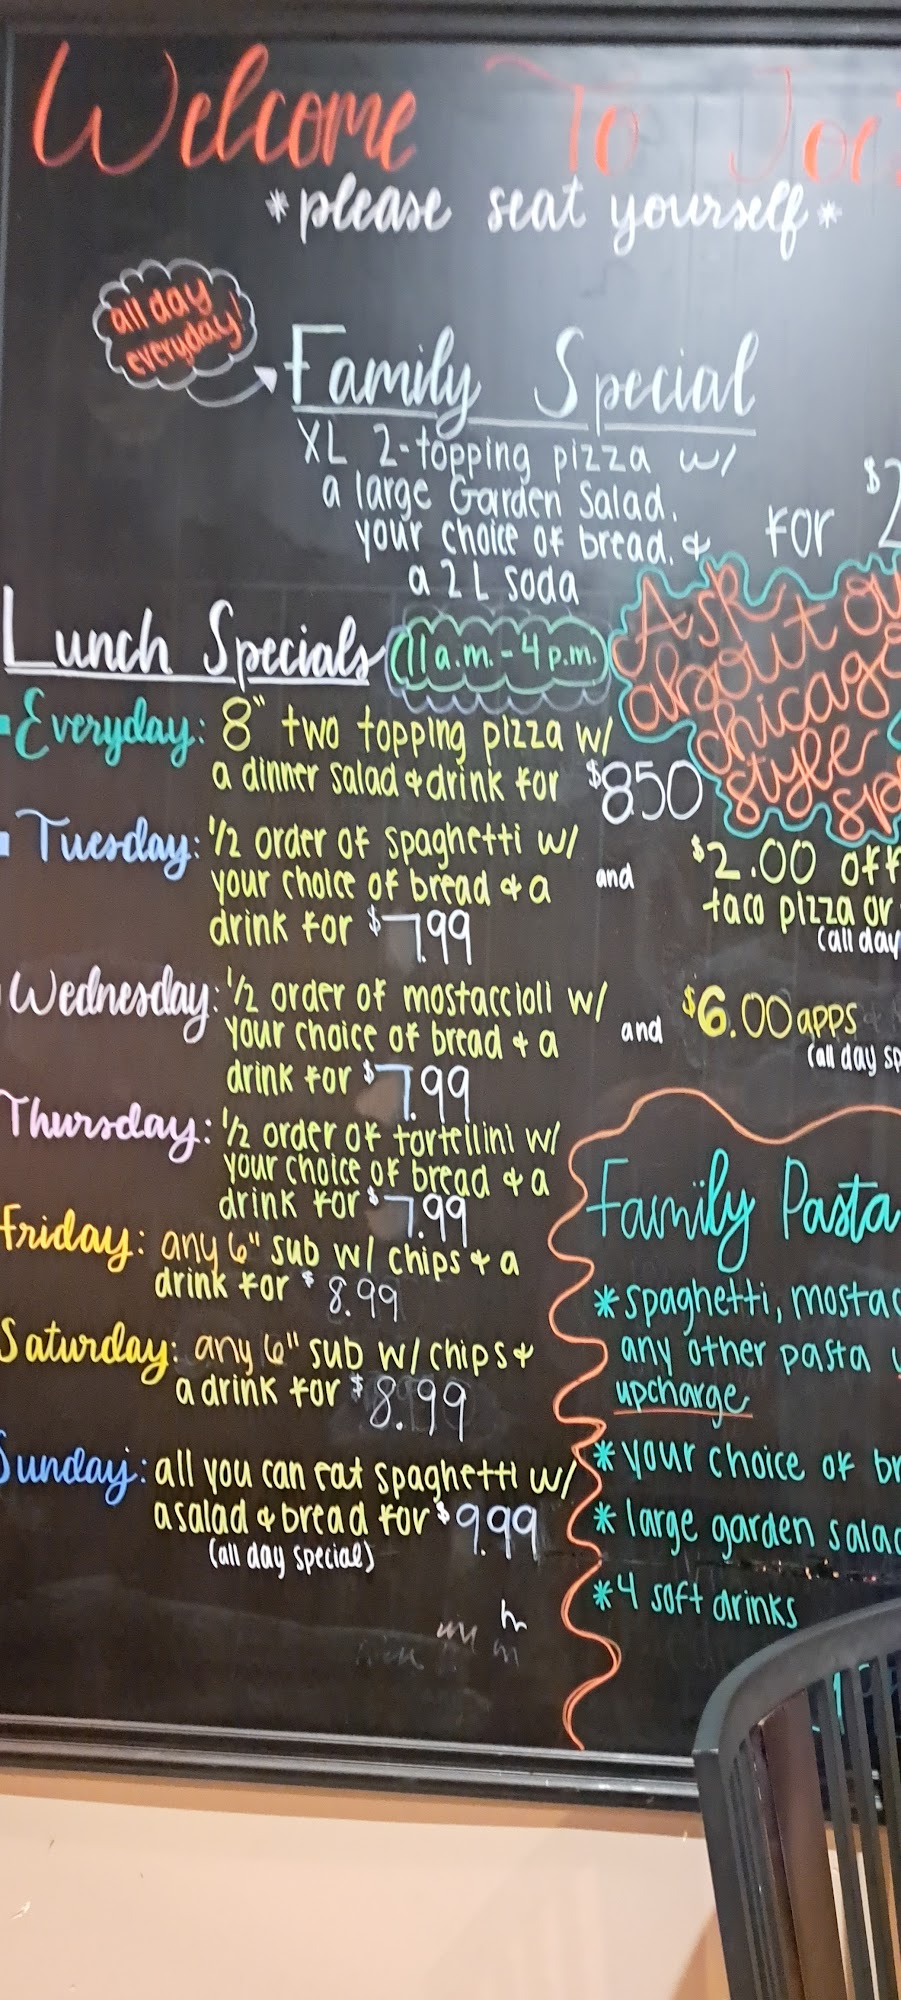 Welcome To Joe's
*please seat yourself*
all day
everyday!
Family Special
XL 2-topping pizza w/
a large Garden Salad,
your choice of bread, &
a 2 L soda
for $2
Lunch Specials
11 a.m. - 4 p.m.
Ask
about ou
chicago
style
sp
Everyday: 8" two topping pizza w/
a dinner salad & drink for $8.50
Tuesday: 1/2 order of spaghetti w/
your choice of bread & a
drink for $7.99
and
$2.00 off
taco pizza or
(all day
Wednesday: 1/2 order of mostaccioli w/
your choice of bread & a
drink for $7.99
and
$6.00 apps
(all day sp
Thursday: 1/2 order of tortellini w/
your choice of bread & a
drink for $7.99
Friday: any 6" sub w/ chips & a
drink for $8.99
Saturday: any 6" sub w/ chips &
a drink for $8.99
Sunday: all you can eat spaghetti w/
a salad & bread for $9.99
(all day special)
Family Pasta
*spaghetti, mostac
any other pasta
upcharge
*your choice of br
*large garden salad
*4 soft drinks